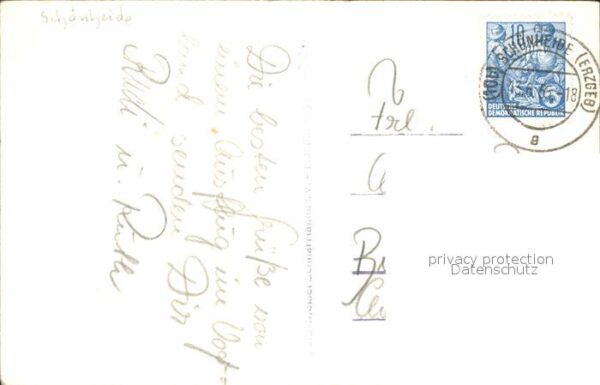 Schönheide
Die besten Grüße von
einem Ausflug im Vogt=
land senden Dir
Rudi u. Ruth
Frl.
10
DEUTSCHE
DEMOKRATISCHE REPUBLIK
5
(10b) SCHÖNHEIDE (ERZGEB)
18
a
privacy protection
Datenschutz